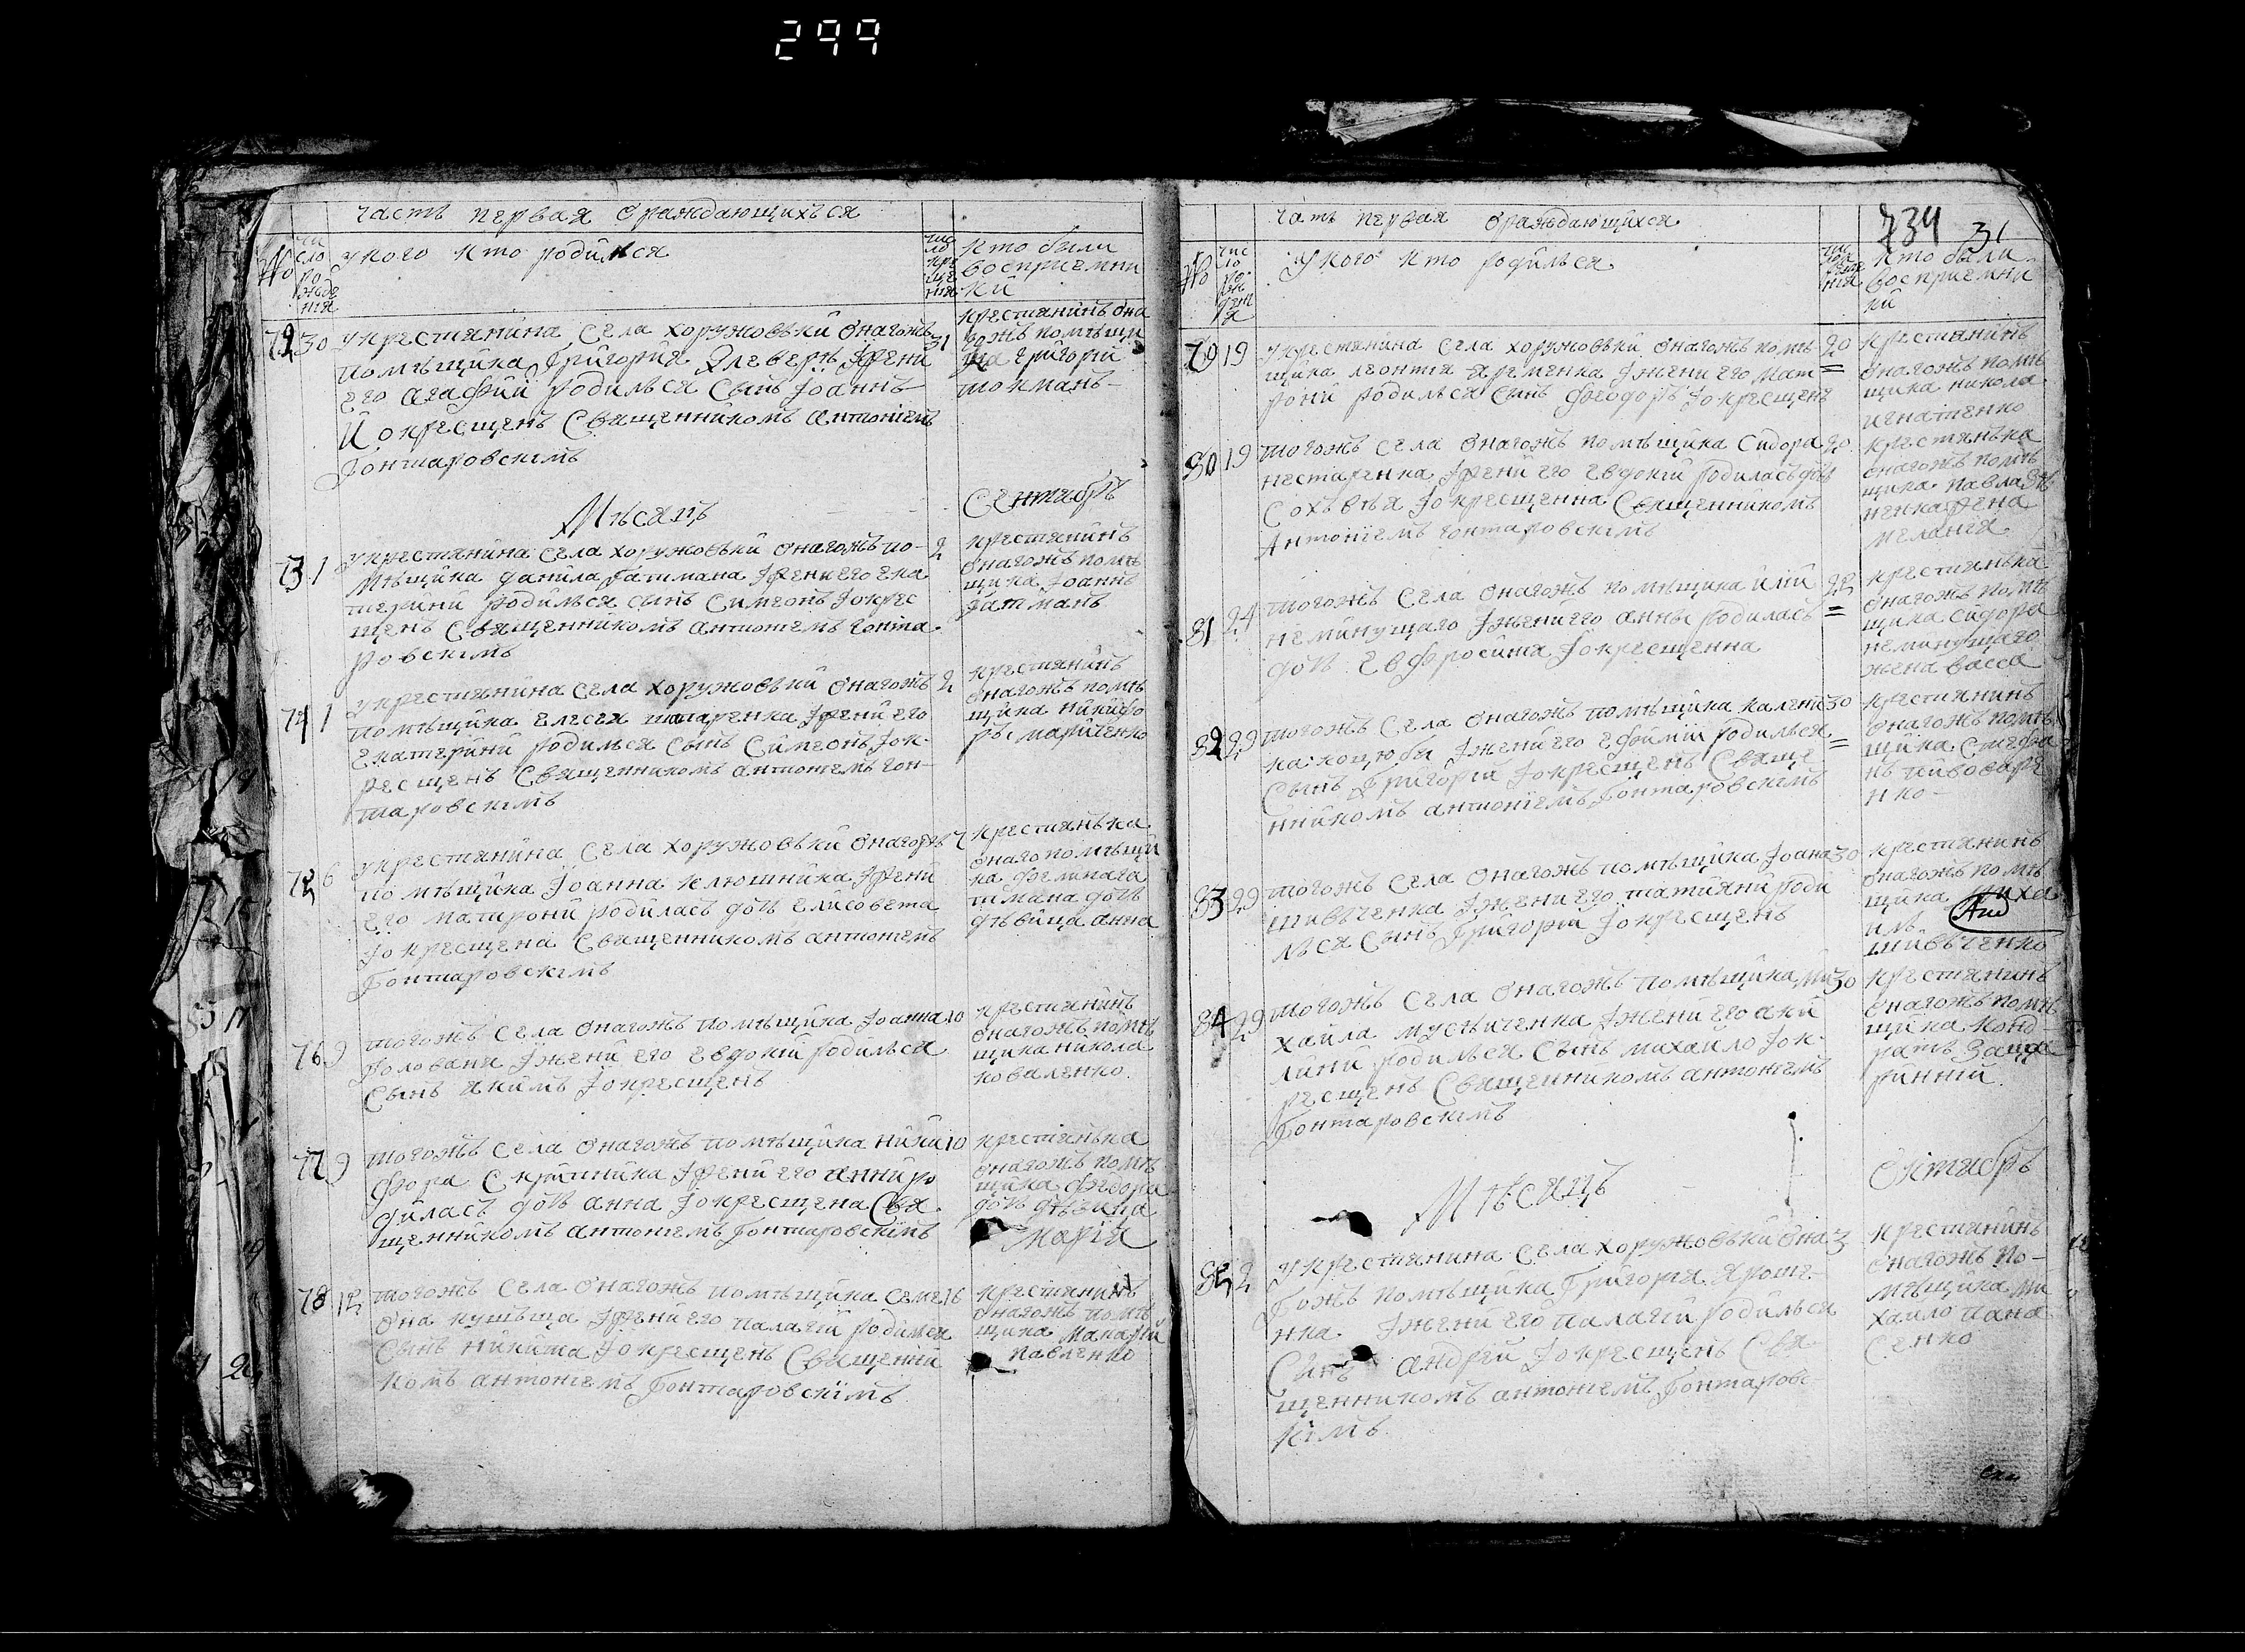 299
часть первая ораждающихъся
№
чи
сло
ро
жде
нія
у кого кто родился
чис
ло
кре
ще
нія
кто были
восприемни
ки
72 30
у крестиянина села хоружовьки онагожъ
помѣщика Григорія
его агафіи родилься сынъ Іоаннъ
и окрещенъ священникомъ антоніемъ
Гонтаровскімъ
31
крестиянинъ она
гожъ помѣщи
ка григорій
токмань
Мѣсяцъ
Сентябрь
73 1
у крестиянина села хоружовьки онагожъ по-
мѣщика данила Гатмана Іжени его ека
терини родилься сынъ Симеонъ Іокре
щенъ священникомъ антоніемъ гонта
ровскімъ
2
крестиянинъ
онагожъ помѣ
щика Іоаннъ
Гатманъ
74 1
у крестиянина села хоружовьки онагожъ
помѣщика елесея Іжени его
екатерини родилься сынъ Симеонъ Іок-
рещенъ священникомъ антоніемъ гон-
таровскімъ
2
крестиянинъ
онагожъ помѣ
щика никифо
ръ мариченко
75 6
у крестиянина села хоружовьки онагожъ
помѣщика Іоанна ключника Іжени
его матрони родилась дочь елисовета
Іокрещена священникомъ антоніемъ
Гонтаровскімъ
7
крестиянька
онаго помѣщи
ка
тмана дочь
дѣвица анна
76 9
тогожъ села онагожъ помѣщика Іоанна
Головани Іжени его евдокіи родилься
сынъ якимъ Іокрещенъ
10
крестиянинъ
онагожъ помѣ
щика никола
коваленко
77 9
тогожъ села онагожъ помѣщика ники
фора скрипника Іжени его анни ро
дилась дочь анна Іокрещена свя
щенникомъ антоніемъ Гонтаровскімъ
10
крестиянька
онагожъ помѣ
щика федора
дочь дѣвица
Марія
78 12
тогожъ села онагожъ помѣщика семе
она Іжени его палагіи родилься
сынъ никита Іокрещенъ священни
комъ антоніемъ Гонтаровскімъ
16
крестиянинъ
онагожъ помѣ
щика Макарій
павленко
734 31
чать первая ораждающихся
№
чис
ло
ро
жде
нія
у кого кто родилься
чис
ло
кто были
восприемни
ки
79 19
у крестянина села хоружовьки онагожъ помѣ
щика леонтія яременка Іжени его мат
рони родилься сынъ феодоръ Іокрещенъ
20
крестиянинъ
онагожъ помѣ
щика никола
игнатенко
80 19
тогожъ села онагожъ помѣщика Сидора
нестеренка Іжени его евдокіи родилась дочь
Іокрещенна священникомъ
Антоніемъ гонтаровскімъ
20
крестиянька
онагожъ помѣ
щика павла
ненка жена
меланія
81 24
тогожъ села онагожъ помѣщика иліи
неминущаго Іжени его анны родилась
дочь евфросинія Іокрещенна
крестиянька
онагожъ помѣ
щика сидора
неминущаго
жена васса
82 29
тогожъ села онагожъ помѣщика калени
ка коцюби Іжени его ефиміи родилься
сынъ Григорій Іокрещенъ свяще
нникомъ антоніемъ Гонтаровскімъ
30
крестиянинъ
онагожъ помѣ
щика Стефа
нъ пивоваре
нко
83 29
тогожъ села онагожъ помѣщика Іоана
шивъченка Іжени его татияни роди
лься сынъ Григорій Іокрещенъ
30
крестиянинъ
онагожъ помѣ
щика миха
илъ
шивъченко
84 29
тогожъ села онагожъ помѣщика ми
хаила Іжени его аки
лини родилься сынъ михаило Іок-
рещенъ священникомъ антоніемъ
Гонтаровскімъ
30
крестиянинъ
онагожъ помѣ
щика конд
ратъ
Мѣсяцъ
Октябрь
85 2
у крестиянина села хоружовьки она
гожъ помѣщика Григорія яроше
нка Іжени его палагіи родилься
сынъ андрей Іокрещенъ свя
щенникомъ антоніемъ Гонтаровс
кімъ
3
крестиянинъ
онагожъ по-
мѣщика ми
хаило пана
сенко